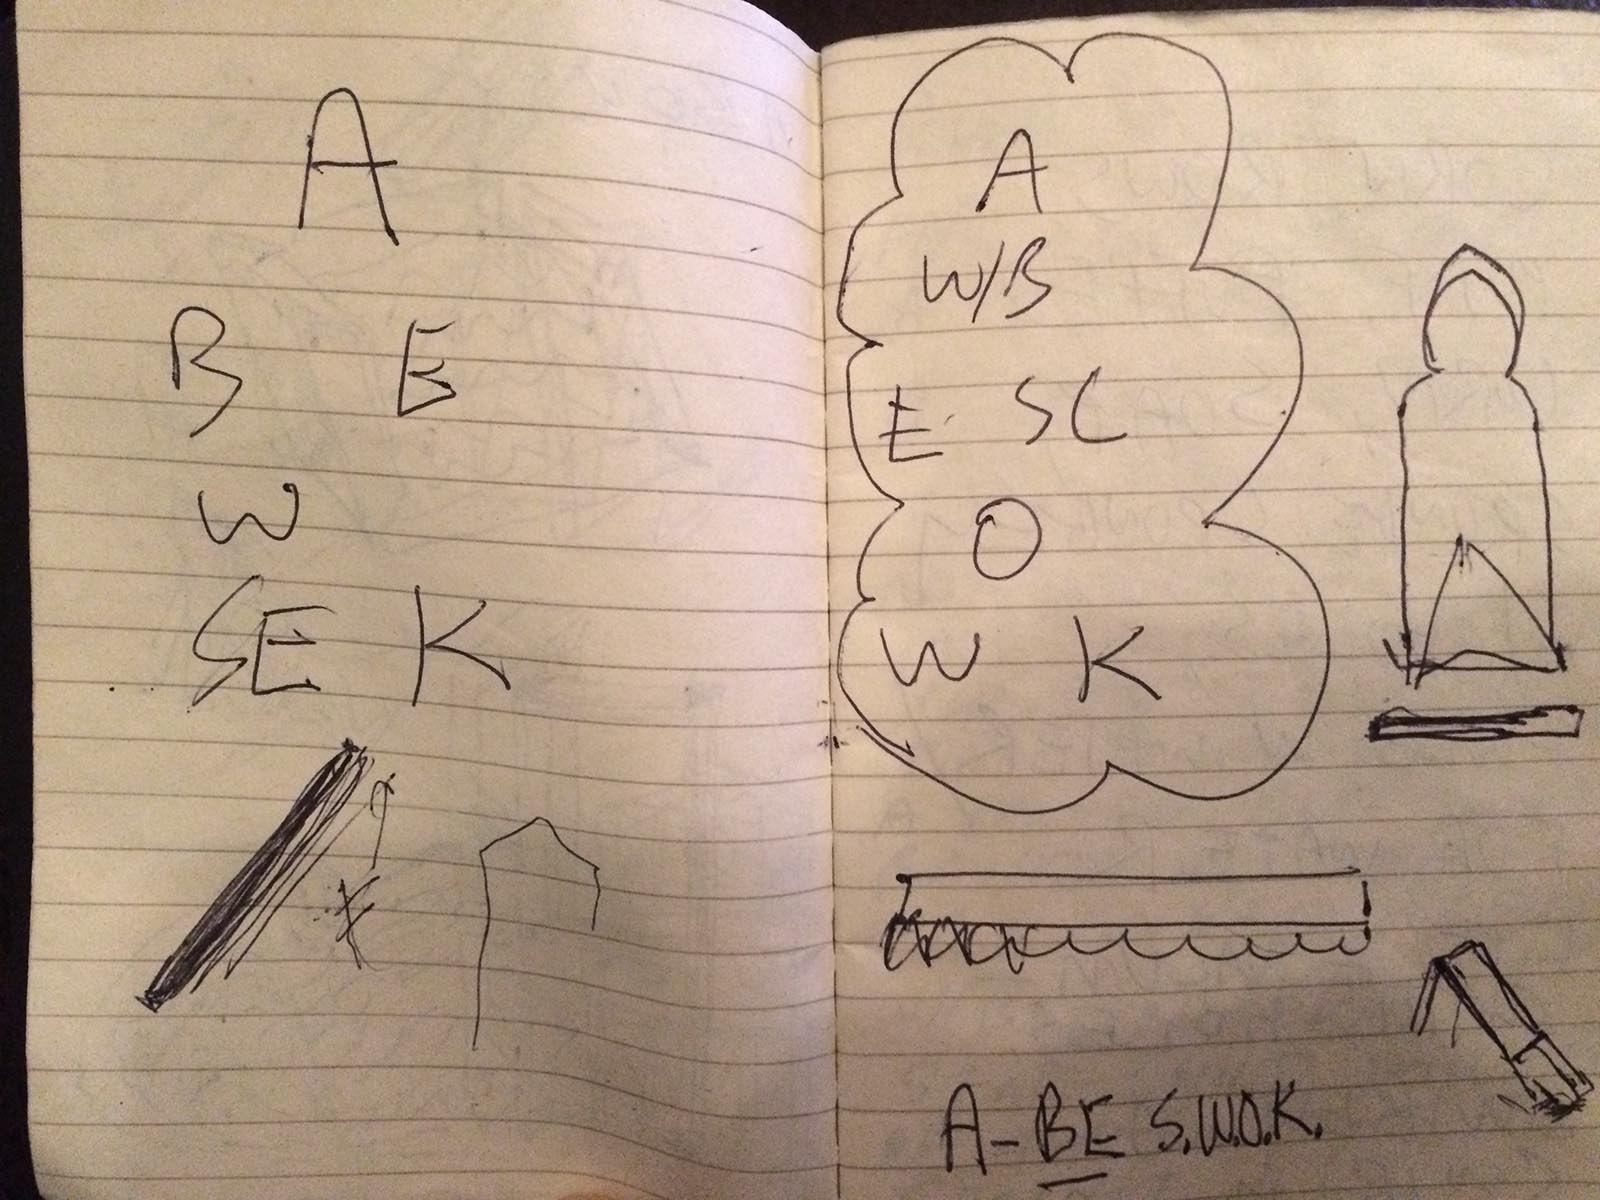 A
B E
W
SE K
A
W/B
E SC
O
W K
A-BE S.W.O.K.